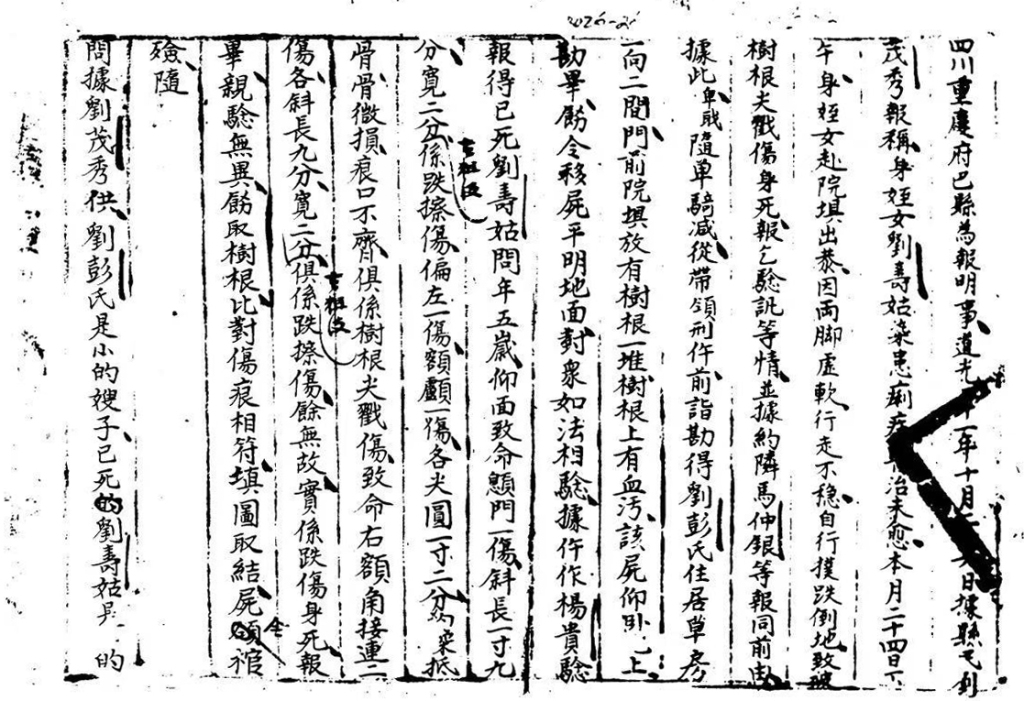 四川重慶府巴縣為報明事道光十一年十月二十日據縣民刘
茂秀報稱身姪女劉壽姑染患痢疾治未愈本月二十四日下
午身姪女赴院垻出恭因両脚虛軟行走不穩自行撲跌倒地致被
樹根夫戳傷身死報乞驗訊等情並據約隣馬仲銀等報同前由
據此卑職隨单騎减從帶領刑仵前詣勘得劉彭氏住居草房
一向二間門前院垻放有樹根一堆樹根上有血汚該屍仰卧地上
勘畢飭令移屍平明地面對衆如法相驗據仵作楊貴驗
報得已死劉壽姑問年五歲仰面致命顖門一傷斜長一寸九
分寛二分係跌擦傷偏左一傷額顱一傷各尖圓一寸二分約深抵
骨骨微損痕口不齊俱係樹根尖戳傷致命右額角接連二
傷各斜長九分寛二分俱係跌擦傷餘無故實係跌傷身死報
畢親驗無異飭取樹根比對傷痕相符填圖取結屍領棺
殮隨
問據劉茂秀供劉彭氏是小的嫂子已死的劉壽姑是小的